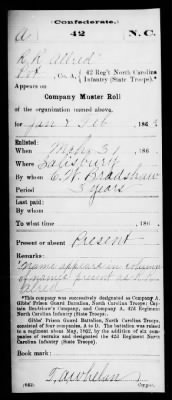 Confederate.
A 42 N. C.
R. R. Allred
Pvt., Co. A, 42 Reg't North Carolina Infantry (State Troops).*
Appears on
Company Muster Roll
of the organization named above,
for Jan & Feb, 186
Enlisted:
When Mch 31, 186
Where Salisbury
By whom C. W. Bradshaw
Period 3 years
Last paid:
By whom
To what time , 186
Present or absent Present
Remarks:
Name appears in column
of names present as R. R.
Alred
*This company was successively designated as Company A,
Gibbs' Prison Guard Battalion, North Carolina Troops; Cap-
tain Bradshaw's Company, and Company A, 42d Regiment
North Carolina Infantry (State Troops).
Gibbs' Prison Guard Battalion, North Carolina Troops,
consisted of four companies, A to D. The battalion was raised
to a regiment about May, 1862, by the addition of six com-
panies of recruits and designated the 42d Regiment North
Carolina Infantry (State Troops).
Book mark:
(642) Copyist.